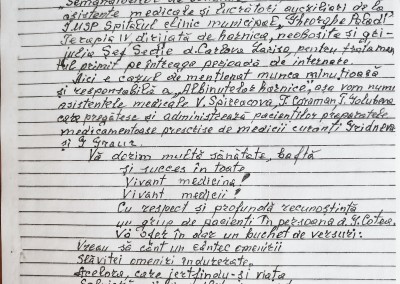 asistente medicale și lucrători auxiliari de la
IMSP Spitalul clinic municipal „Gheorghe Paladi"
Terapie IV dirijată de harnica, neobosita și gri-
julia Șef Secție d. Carlova Larisa, pentru tratamen-
tul primit pe întreaga perioadă de internare.
Aici e cazul de menționat munca minuțioasă
și responsabilă a „Albinuțelor harnice", așa vom numi
asistentele medicale V. Spireacova, T. Caraman, T. Golubeva
care pregătesc și administrează pacienților preparatele
medicamentoase prescrise de medicii curanți Gridneva
și I. Graur.
Vă dorim multă sănătate, baftă
și succes în toate.
Vivant medicina!
Vivant medicii!
Cu respect și profundă recunoștință
un grup de pacienți în persoana d. I. Cotea.
Vă ofer în dar un buchet de versuri:
Vreau să cânt un cântec omenirii
Slăvitei omeniri îndurerate.
Acelora, care jertfindu-și viața